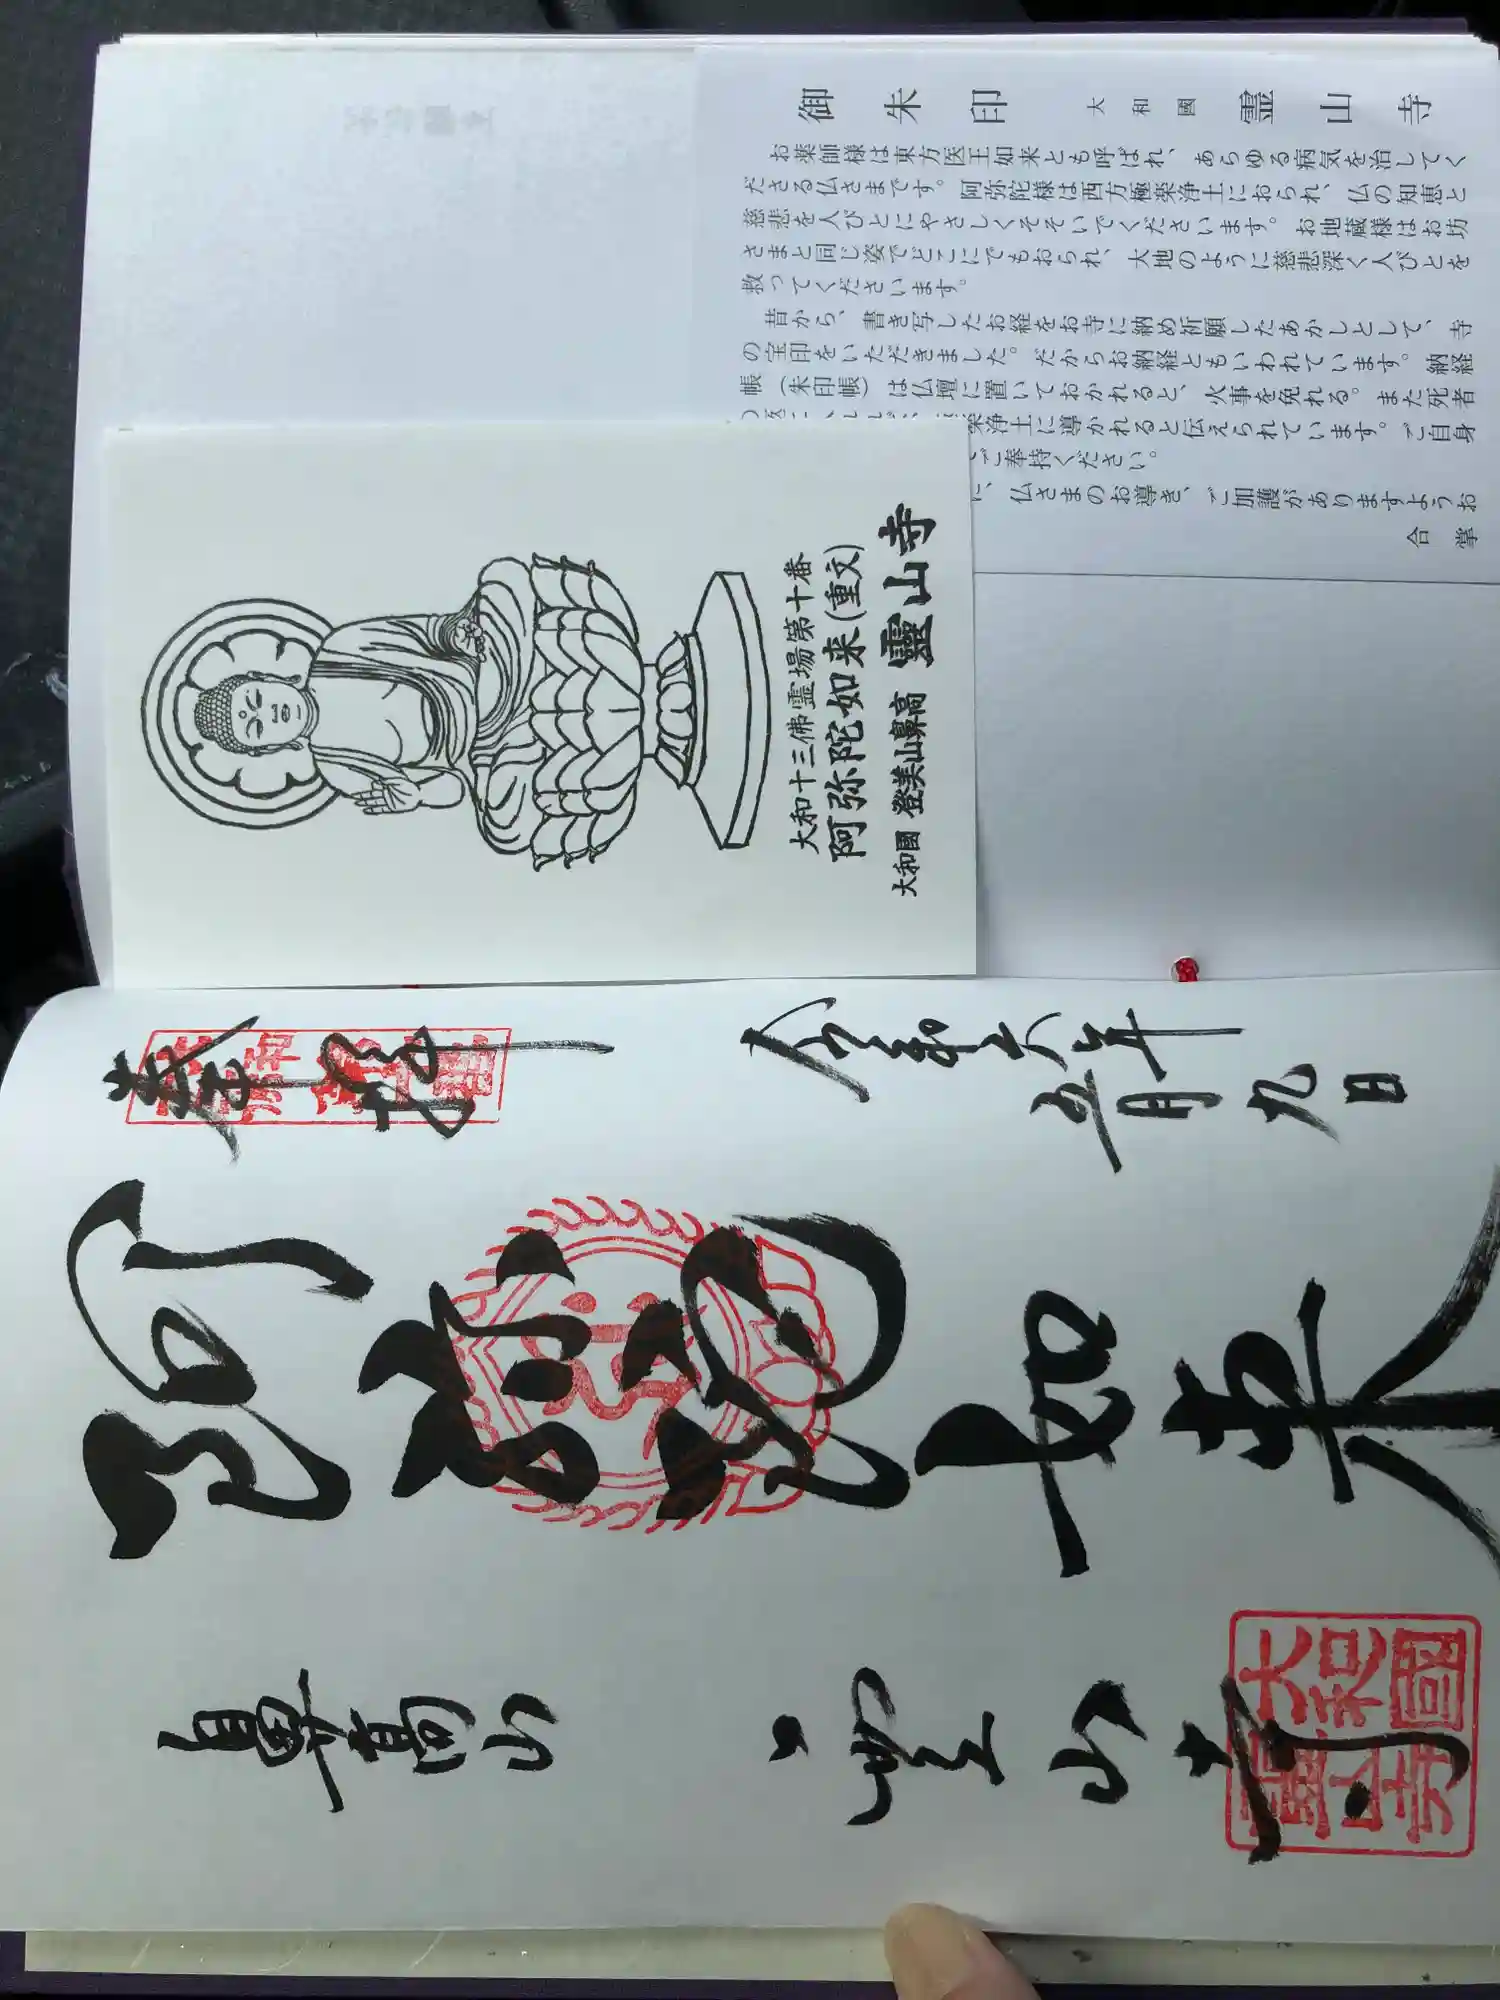 御朱印 大和國 霊山寺
お薬師様は東方医王如来とも呼ばれ、あらゆる病気を治してく
ださる仏さまです。阿弥陀様は西方極楽浄土におられ、仏の知恵と
慈悲を人びとにやさしくそそいでくださいます。お地蔵様はお坊
さまと同じ姿でどこにでもおられ、大地のように慈悲深く人びとを
救ってくださいます。
昔から、書き写したお経をお寺に納め祈願したあかしとして、寺
の宝印をいただきました。だからお納経ともいわれています。納経
帳（朱印帳）は仏壇に置いておかれると、火事を免れる。また死者
楽浄土に導かれると伝えられています。ご自身
ご奉持ください。
に、仏さまのお導き、ご加護がありますようお
合掌
大和十三佛霊場第十番
阿弥陀如来(重文)
大和國 登美山鼻高 靈山寺
奉拝
令和六年
五月九日
阿弥陀如来
鼻高山
霊山寺
大和國
靈山寺